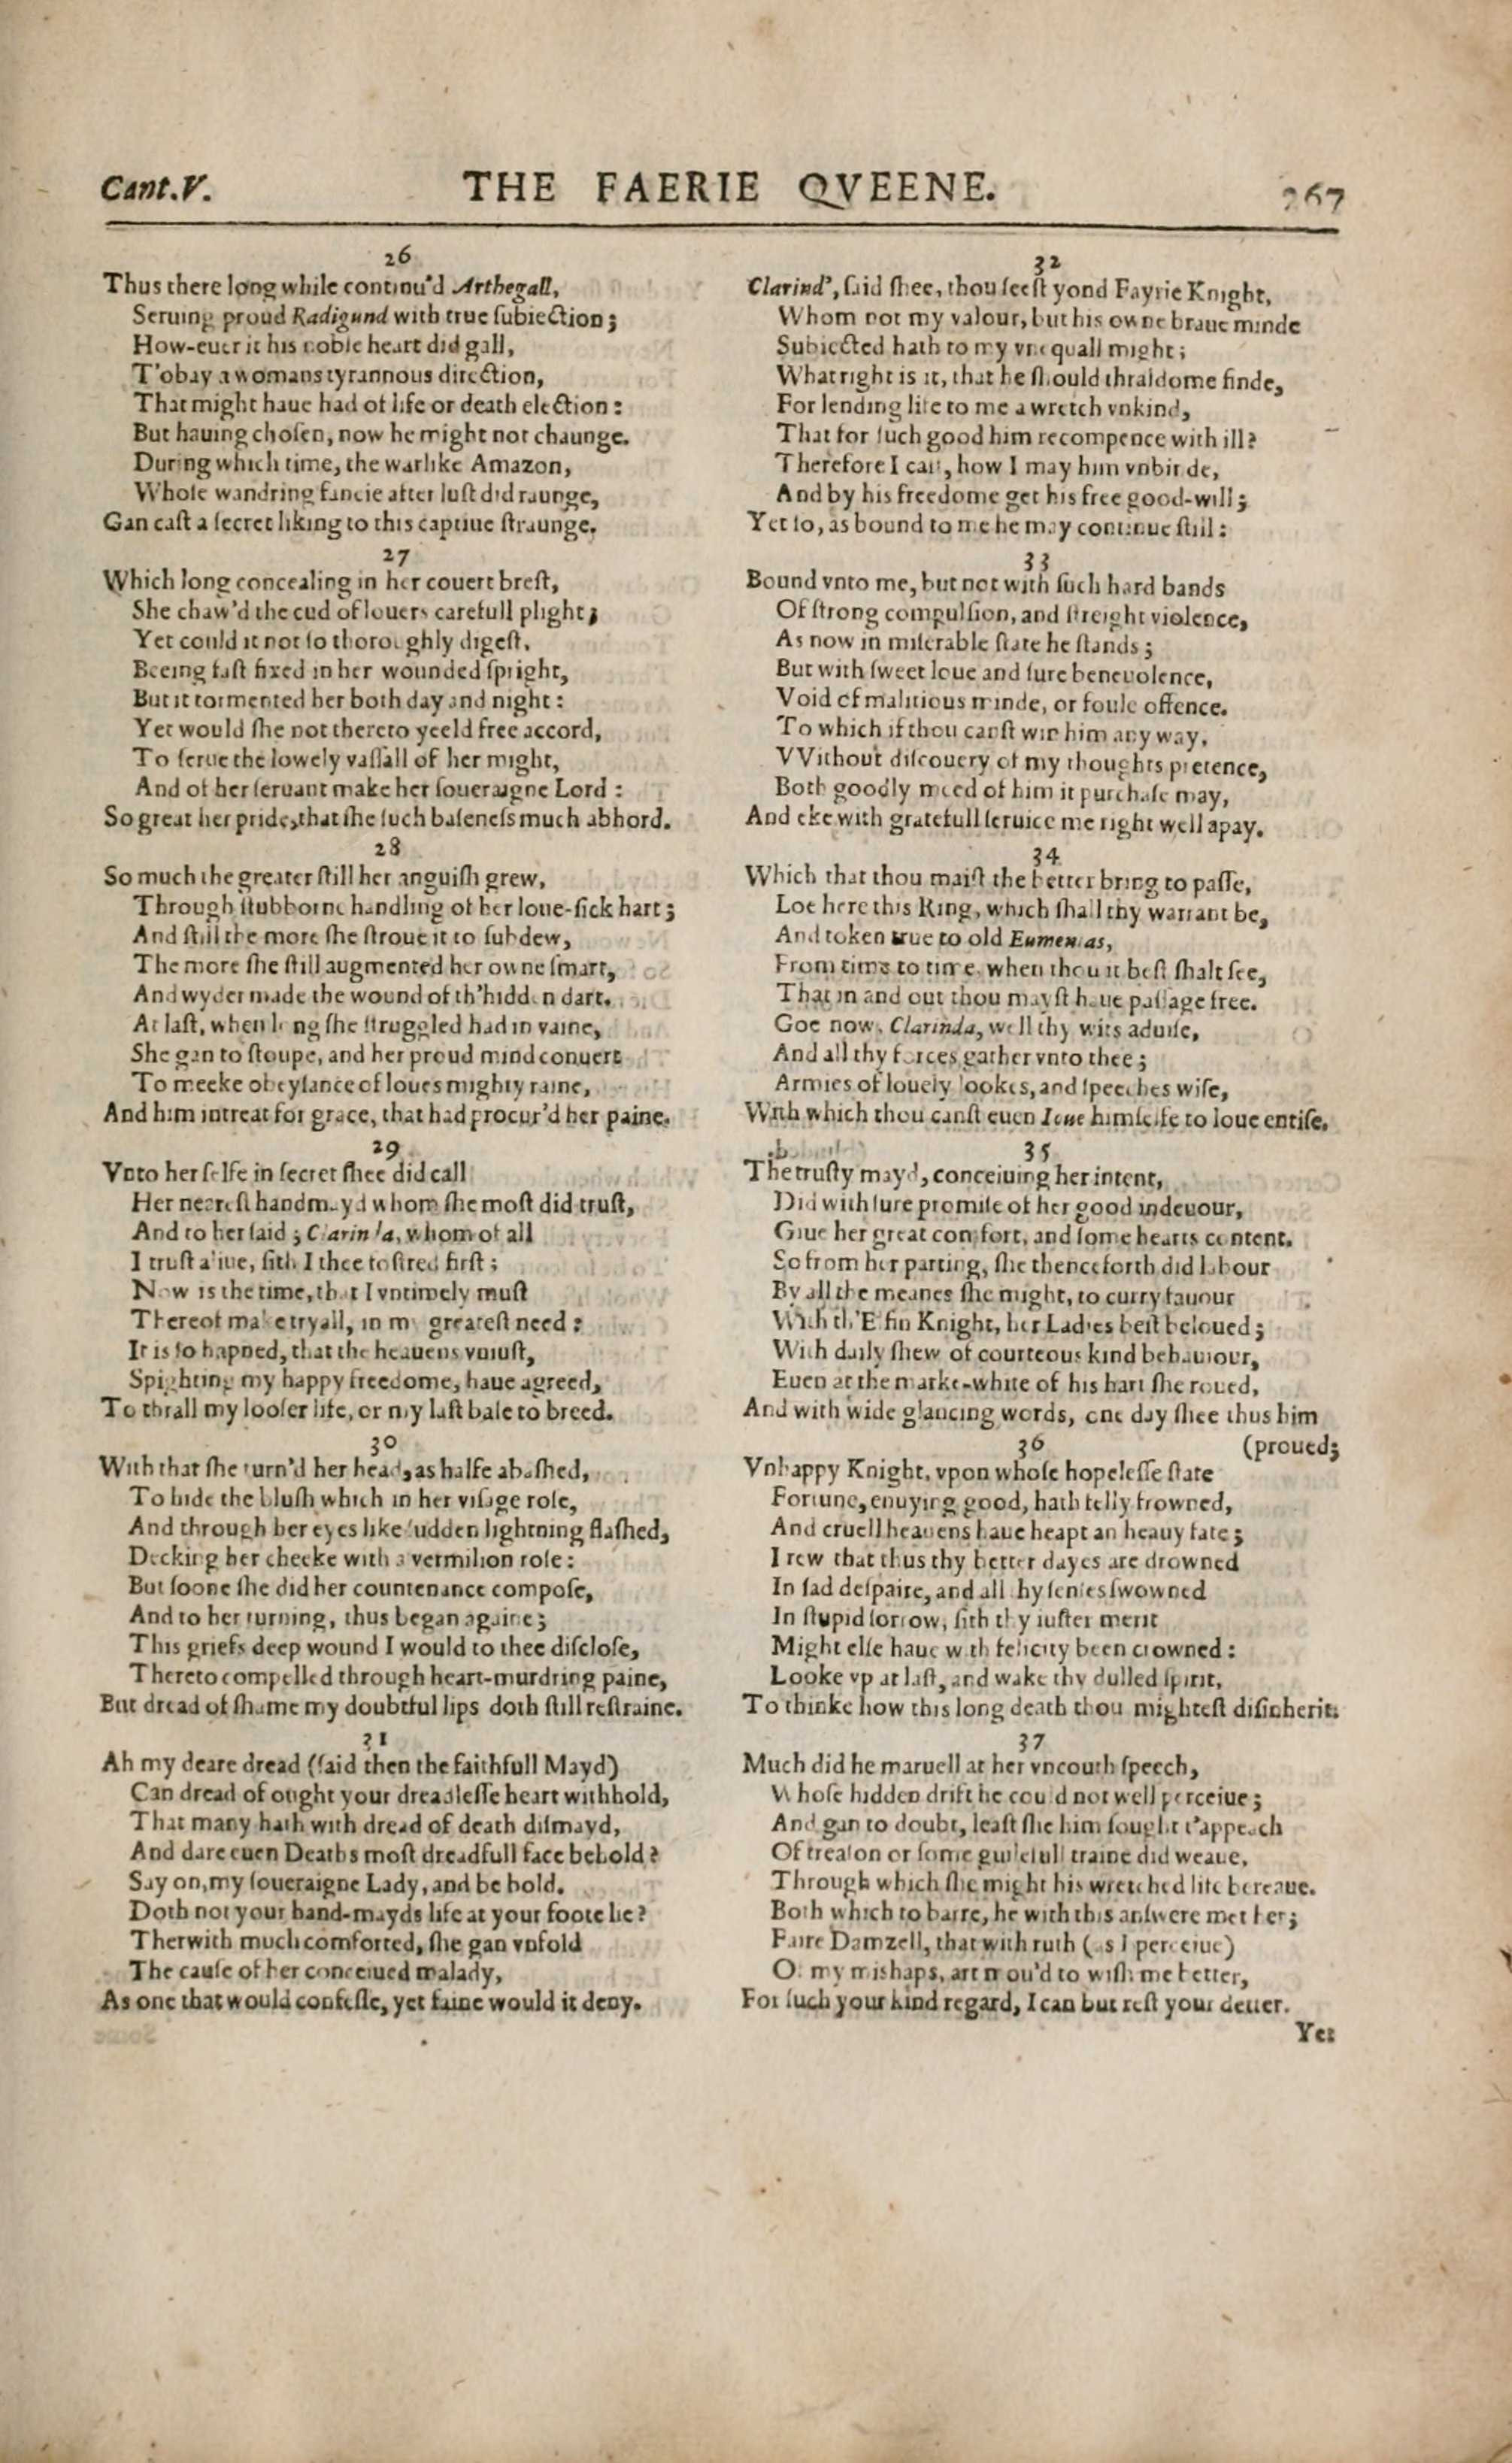 Cant.V.
THE FAERIE QVEENE.
267
26
Thus there long while continu'd Arthegall,
Seruing proud Radigund with true ſubiection;
How-euer it his noble heart did gall,
T'obay a womans tyrannous direction,
That might haue had of life or death election:
But hauing choſen, now he might not chaunge.
During which time, the warlike Amazon,
Whoſe wandring fancie after luſt did raunge,
Gan caſt a ſecret liking to this captiue ſtraunge.
27
Which long concealing in her couert breſt,
She chaw'd the cud of louers carefull plight;
Yet could it not ſo thoroughly digeſt,
Beeing faſt fixed in her wounded ſpright,
But it tormented her both day and night:
Yet would ſhe not thereto yeeld free accord,
To ſerue the lowely vaſſall of her might,
And of her ſeruant make her ſoueraigne Lord:
So great her pride, that ſhe ſuch baſeneſs much abhord.
28
So much the greater ſtill her anguiſh grew,
Through ſtubborne handling of her loue-ſick hart;
And ſtill the more ſhe ſtroue it to ſubdew,
The more ſhe ſtill augmented her owne ſmart,
And wyder made the wound of th'hidden dart.
At laſt, when long ſhe ſtruggled had in vaine,
She gan to ſtoupe, and her proud mind conuert
To meeke obeyſance of loues mighty raine,
And him intreat for grace, that had procur'd her paine.
29
Vnto her ſelfe in ſecret ſhee did call
Her neareſt handmayd whom ſhe moſt did truſt,
And to her ſaid; Clarinda, whom of all
I truſt aliue, ſith I thee foſtred firſt;
Now is the time, that I vntimely muſt
Thereof make tryall, in my greateſt need:
It is ſo hapned, that the heauens vniuſt,
Spighting my happy freedome, haue agreed,
To thrall my looſer life, or my laſt bale to breed.
30
With that ſhe turn'd her head, as halfe abaſhed,
To hide the bluſh which in her viſage roſe,
And through her eyes like ſudden lightning flaſhed,
Decking her cheeke with a vermilion roſe:
But ſoone ſhe did her countenance compoſe,
And to her turning, thus began againe;
This griefs deep wound I would to thee diſcloſe,
Thereto compelled through heart-murdring paine,
But dread of ſhame my doubtful lips doth ſtill reſtraine.
31
Ah my deare dread (ſaid then the faithfull Mayd)
Can dread of ought your dreadleſſe heart withhold,
That many hath with dread of death diſmayd,
And dare euen Deaths moſt dreadfull face behold?
Say on, my ſoueraigne Lady, and be bold.
Doth not your hand-mayds life at your foote lie?
Therwith much comforted, ſhe gan vnfold
The cauſe of her conceiued malady,
As one that would confeſſe, yet faine would it deny.
32
Clarind', ſaid ſhee, thou ſeeſt yond Fayrie Knight,
Whom not my valour, but his owne braue minde
Subiected hath to my vnequall might;
What right is it, that he ſhould thraldome finde,
For lending life to me a wretch vnkind,
That for ſuch good him recompence with ill?
Therefore I caſt, how I may him vnbinde,
And by his freedome get his free good-will;
Yet ſo, as bound to me he may continue ſtill:
33
Bound vnto me, but not with ſuch hard bands
Of ſtrong compulſion, and ſtreight violence,
As now in miſerable ſtate he ſtands;
But with ſweet loue and ſure beneuolence,
Void of malitious minde, or foule offence.
To which if thou canſt win him any way,
VVithout diſcouery of my thoughts pretence,
Both goodly meed of him it purchaſe may,
And eke with gratefull ſeruice me right well apay.
34
Which that thou maiſt the better bring to paſſe,
Loe here this Ring, which ſhall thy warrant be,
And token true to old Eumenias,
From time to time, when thou it beſt ſhalt ſee,
That in and out thou mayſt haue paſſage free.
Goe now, Clarinda, well thy wits aduiſe,
And all thy forces gather vnto thee;
Armies of louely lookes, and ſpeeches wiſe,
With which thou canſt euen Ioue himſelfe to loue entiſe.
35
The truſty mayd, conceiuing her intent,
Did with ſure promiſe of her good indeuour,
Giue her great comfort, and ſome hearts content.
So from her parting, ſhe thenceforth did labour
By all the meanes ſhe might, to curry fauour
With th'Elfin Knight, her Ladies beſt beloued;
With daily ſhew of courteous kind behauiour,
Euen at the marke-white of his hart ſhe roued,
And with wide glancing words, one day ſhee thus him
(proued;
36
Vnhappy Knight, vpon whoſe hopeleſſe ſtate
Fortune, enuying good, hath felly frowned,
And cruell heauens haue heapt an heauy fate;
I rew that thus thy better dayes are drowned
In ſad deſpaire, and all thy ſenſes ſwowned
In ſtupid ſorrow, ſith thy iuſter merit
Might elſe haue with felicity been crowned:
Looke vp at laſt, and wake thy dulled ſpirit,
To thinke how this long death thou mighteſt diſinherit.
37
Much did he maruell at her vncouth ſpeech,
Whoſe hidden drift he could not well perceiue;
And gan to doubt, leaſt ſhe him ſought t'appeach
Of treaſon or ſome guilefull traine did weaue,
Through which ſhe might his wretched life bereaue.
Both which to barre, he with this anſwere met her;
Faire Damzell, that with ruth (as I perceiue)
Of my miſhaps, art mou'd to wiſh me better,
For ſuch your kind regard, I can but reſt your detter.
Yet